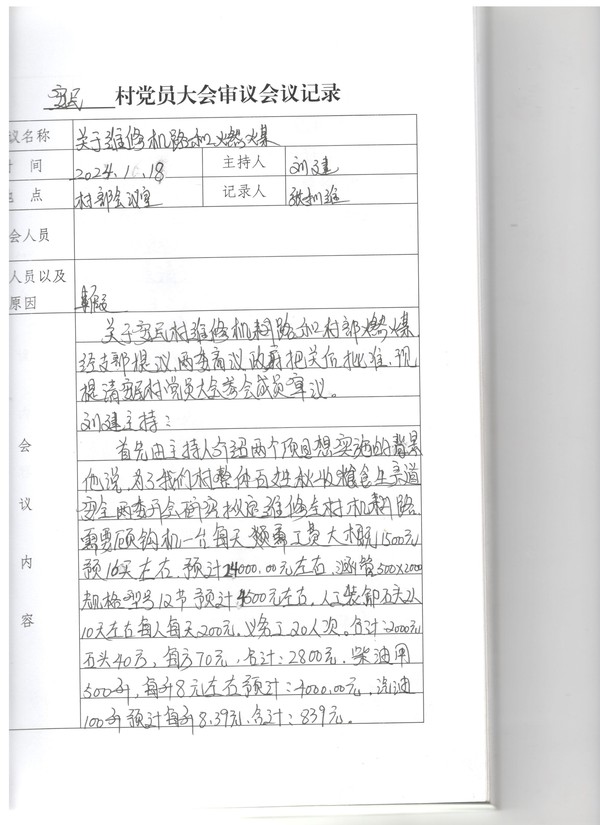 村党员大会审议会议记录
议名称 关于维修机路和燃煤
时 间 2024.10.18 主持人 刘建
点 村部会议室 记录人
会人员
人员以及
原因
关于 民村维修机耕路和村部燃煤
经支部提议,两委商议政府把关后批准,现
提请 民村党员大会参会成员审议。
刘建主持:
首先由主持人介绍两个项目想实施的背景
他说,为了我们村整体百姓秋收粮食上
安全两委开会研究拟定维修全村机耕路
需要顾钩机一台每天 需工费大概1500元
预16天左右,预计24000.00元左右,涵管500×2000
规格型号12节预计4600元左右,人工装卸石头2人
10天左右每人每天200元,义务工20人次。合计:2000元
石头40方,每方70元,合计:2800元,柴油用
500升,每升8元左右预计:4000.00元,汽油
100升预计每升8.39元,合计:839元。
会
议
内
容